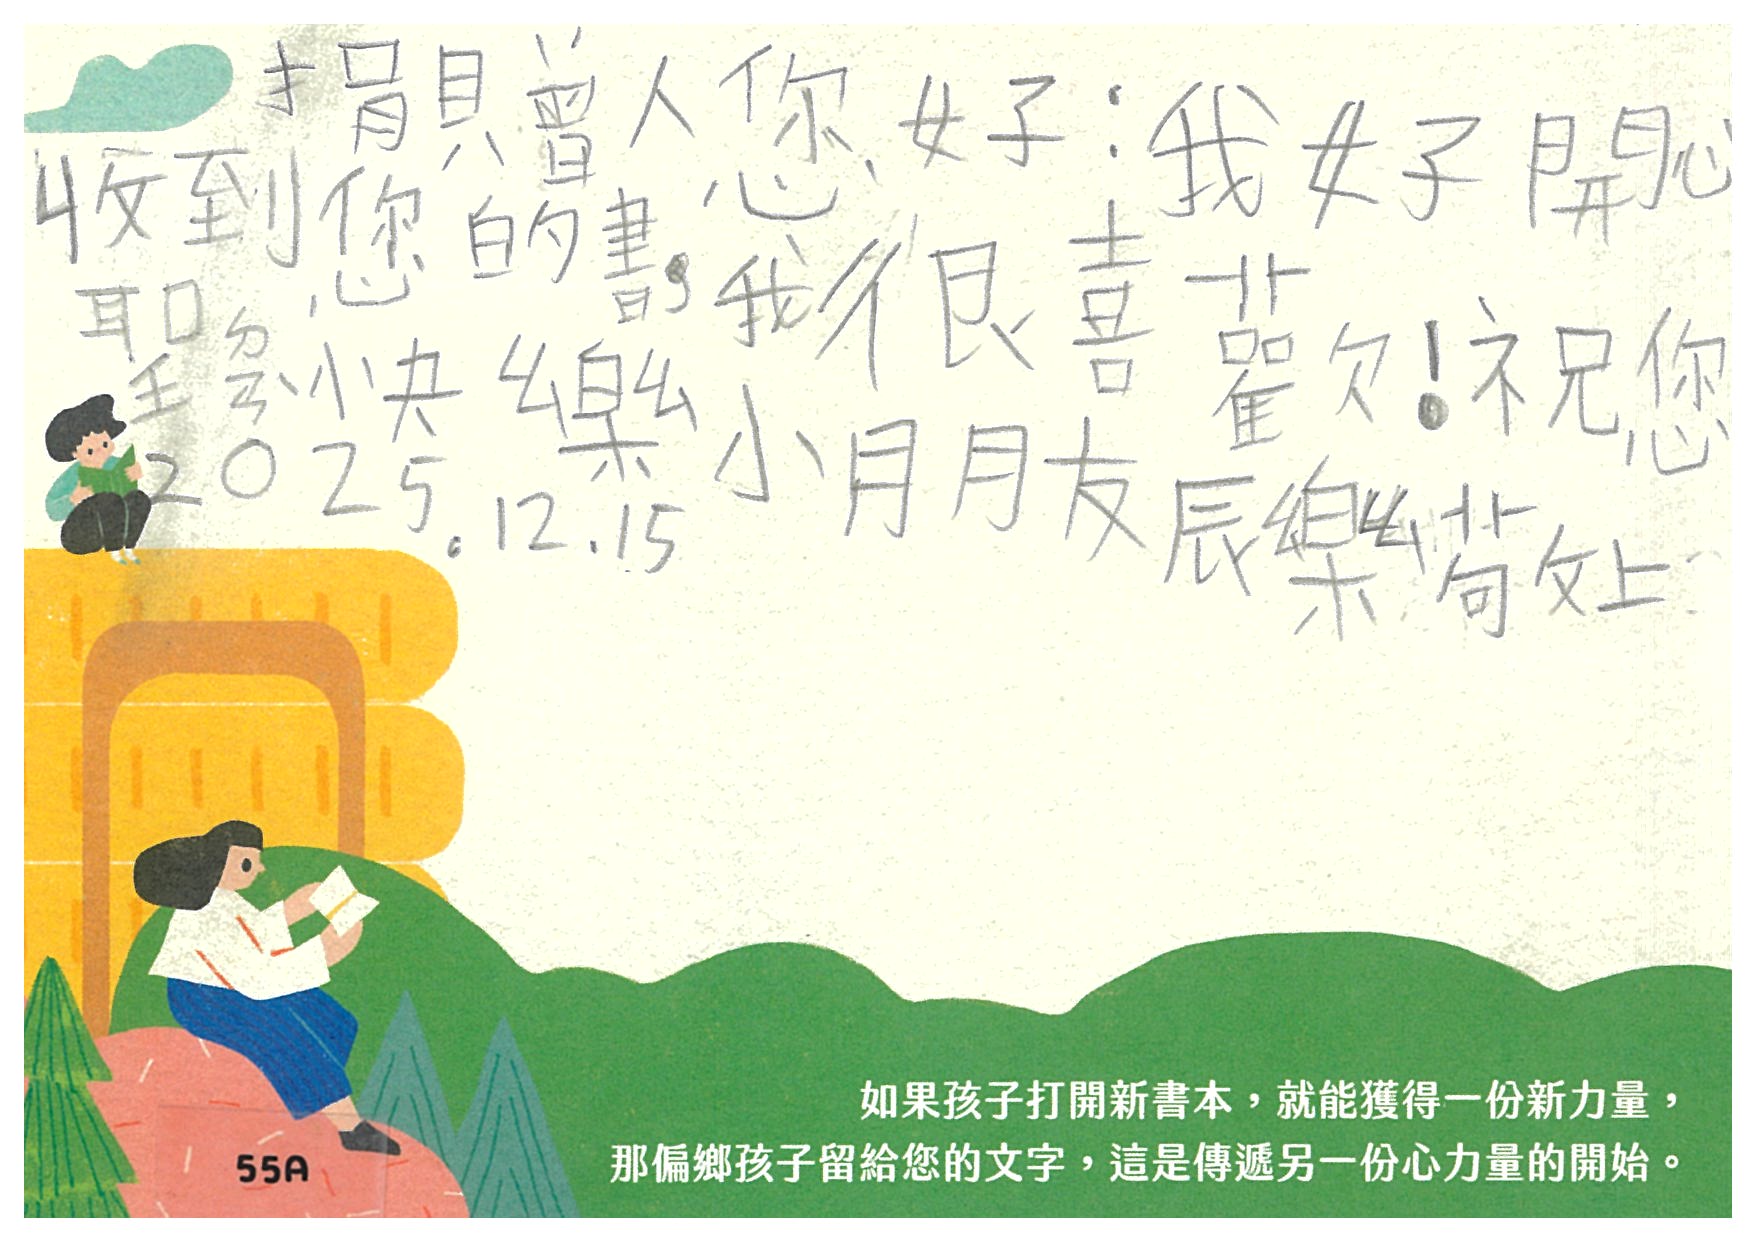 捐贈人您好：我好開心
收到您的書，我很喜歡！祝您
聖ㄉㄢˋ快樂 小朋友辰樂敬上
2025.12.15
如果孩子打開新書本，就能獲得一份新力量，
那偏鄉孩子留給您的文字，這是傳遞另一份心力量的開始。
55A